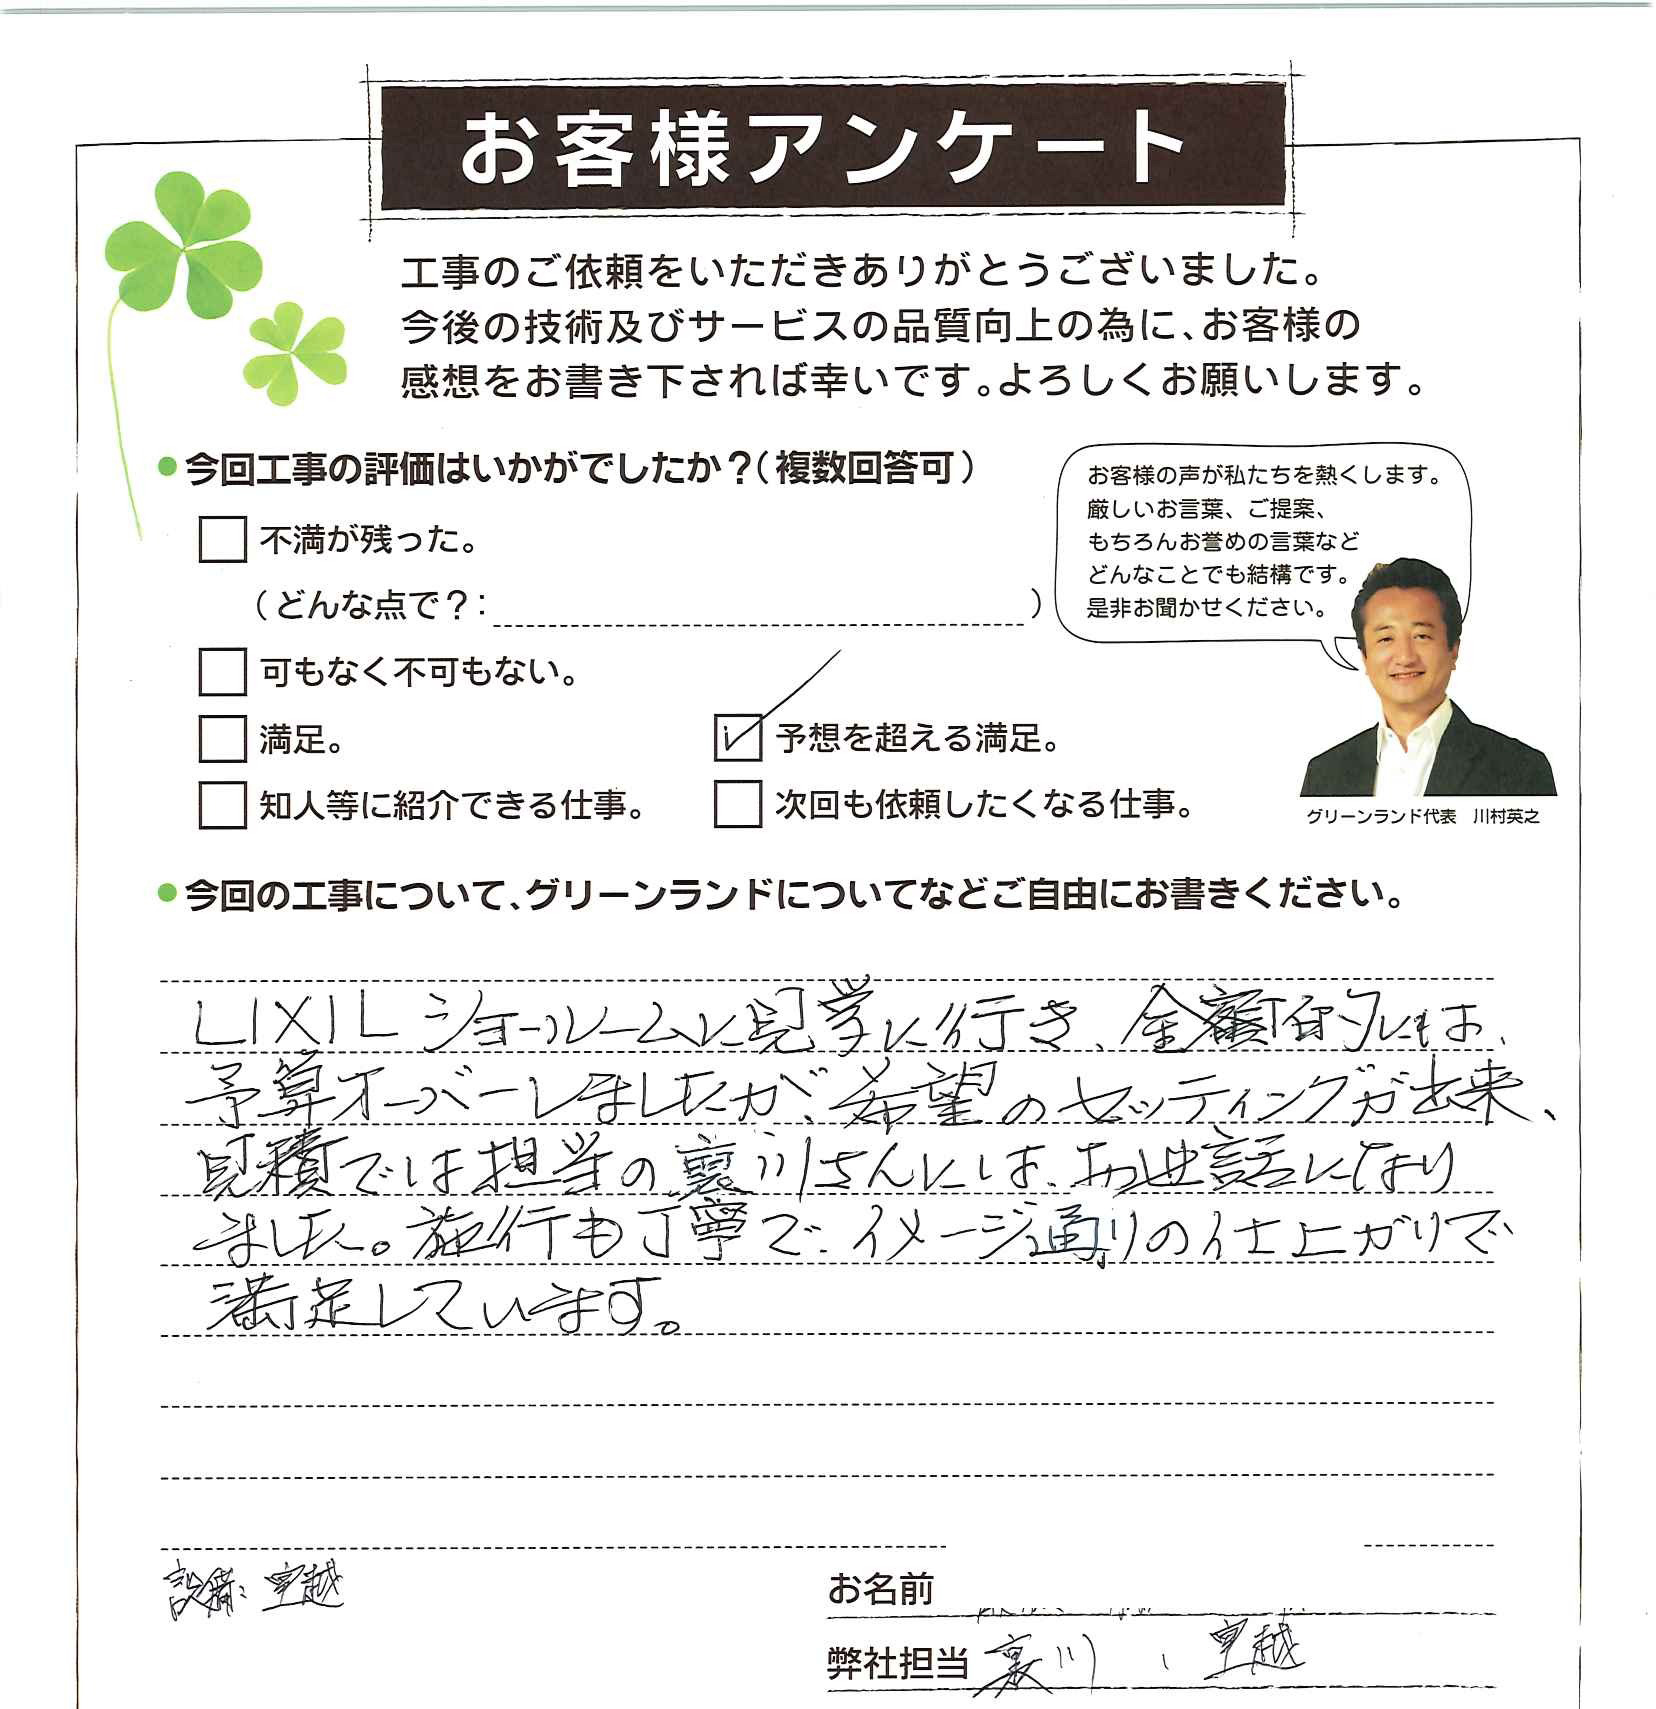 お客様アンケート
工事のご依頼をいただきありがとうございました。
今後の技術及びサービスの品質向上の為に、お客様の
感想をお書き下されば幸いです。よろしくお願いします。
今回工事の評価はいかがでしたか？(複数回答可)
不満が残った。
(どんな点で？: )
可もなく不可もない。
満足。
予想を超える満足。
知人等に紹介できる仕事。
次回も依頼したくなる仕事。
お客様の声が私たちを熱くします。
厳しいお言葉、ご提案、
もちろんお誉めの言葉など
どんなことでも結構です。
是非お聞かせください。
グリーンランド代表 川村英之
今回の工事について、グリーンランドについてなどご自由にお書きください。
LIXILショールームに見学に行き、金額的には、
予算オーバーしましたが、希望のセッティングが出来、
見積では担当の裏川さんには、お世話になり
ました。施行も丁寧で、イメージ通りの仕上がりで
満足しています。
設備: 室越
お名前
弊社担当 裏川 、 室越